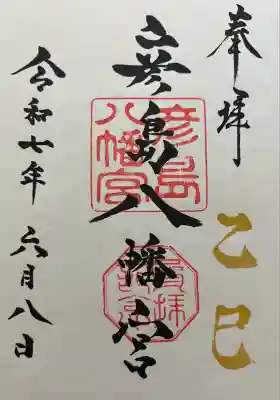 奉拝
乙巳
彦島八幡宮
彦島
八幡宮
令和七年 六月八日